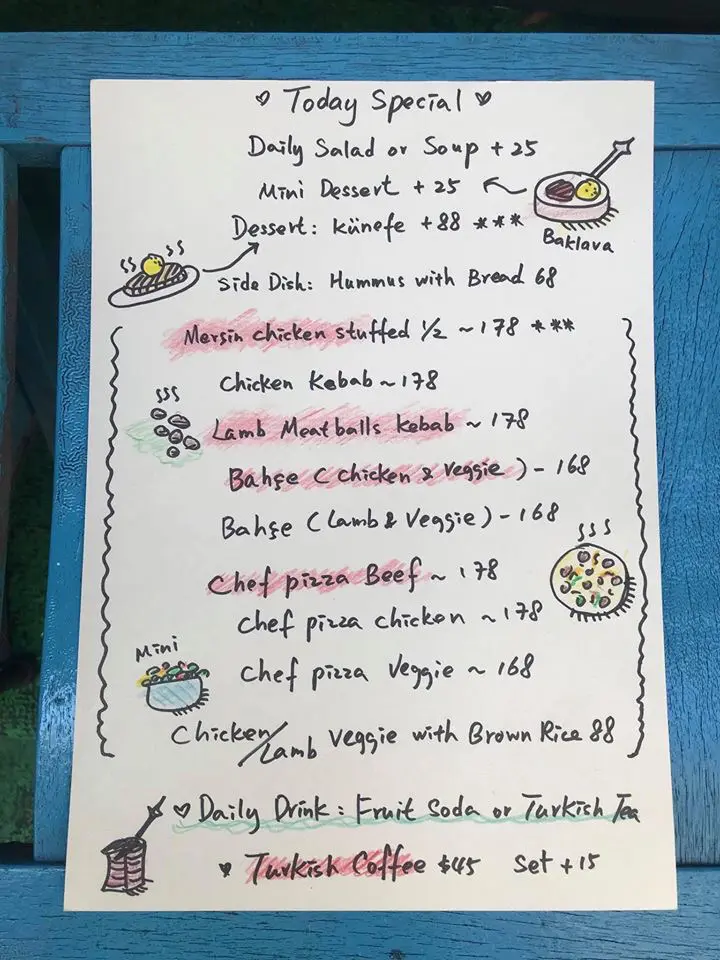 ♡ Today Special ♡
Daily Salad or Soup + 25
Mini Dessert + 25
Baklava
Dessert: künefe + 88 ***
Side Dish: Hummus with Bread 68
Mersin chicken stuffed 1/2 ~ 178 ***
Chicken Kebab ~ 178
Lamb Meatballs Kebab ~ 178
Bahşe ( chicken & veggie ) - 168
Bahşe ( Lamb & Veggie ) - 168
Chef pizza Beef ~ 178
chef pizza chicken ~ 178
Mini
chef pizza veggie ~ 168
Chicken/Lamb veggie with Brown Rice 88
♡ Daily Drink : Fruit Soda or Turkish Tea
♥ Turkish Coffee $45 Set + 15